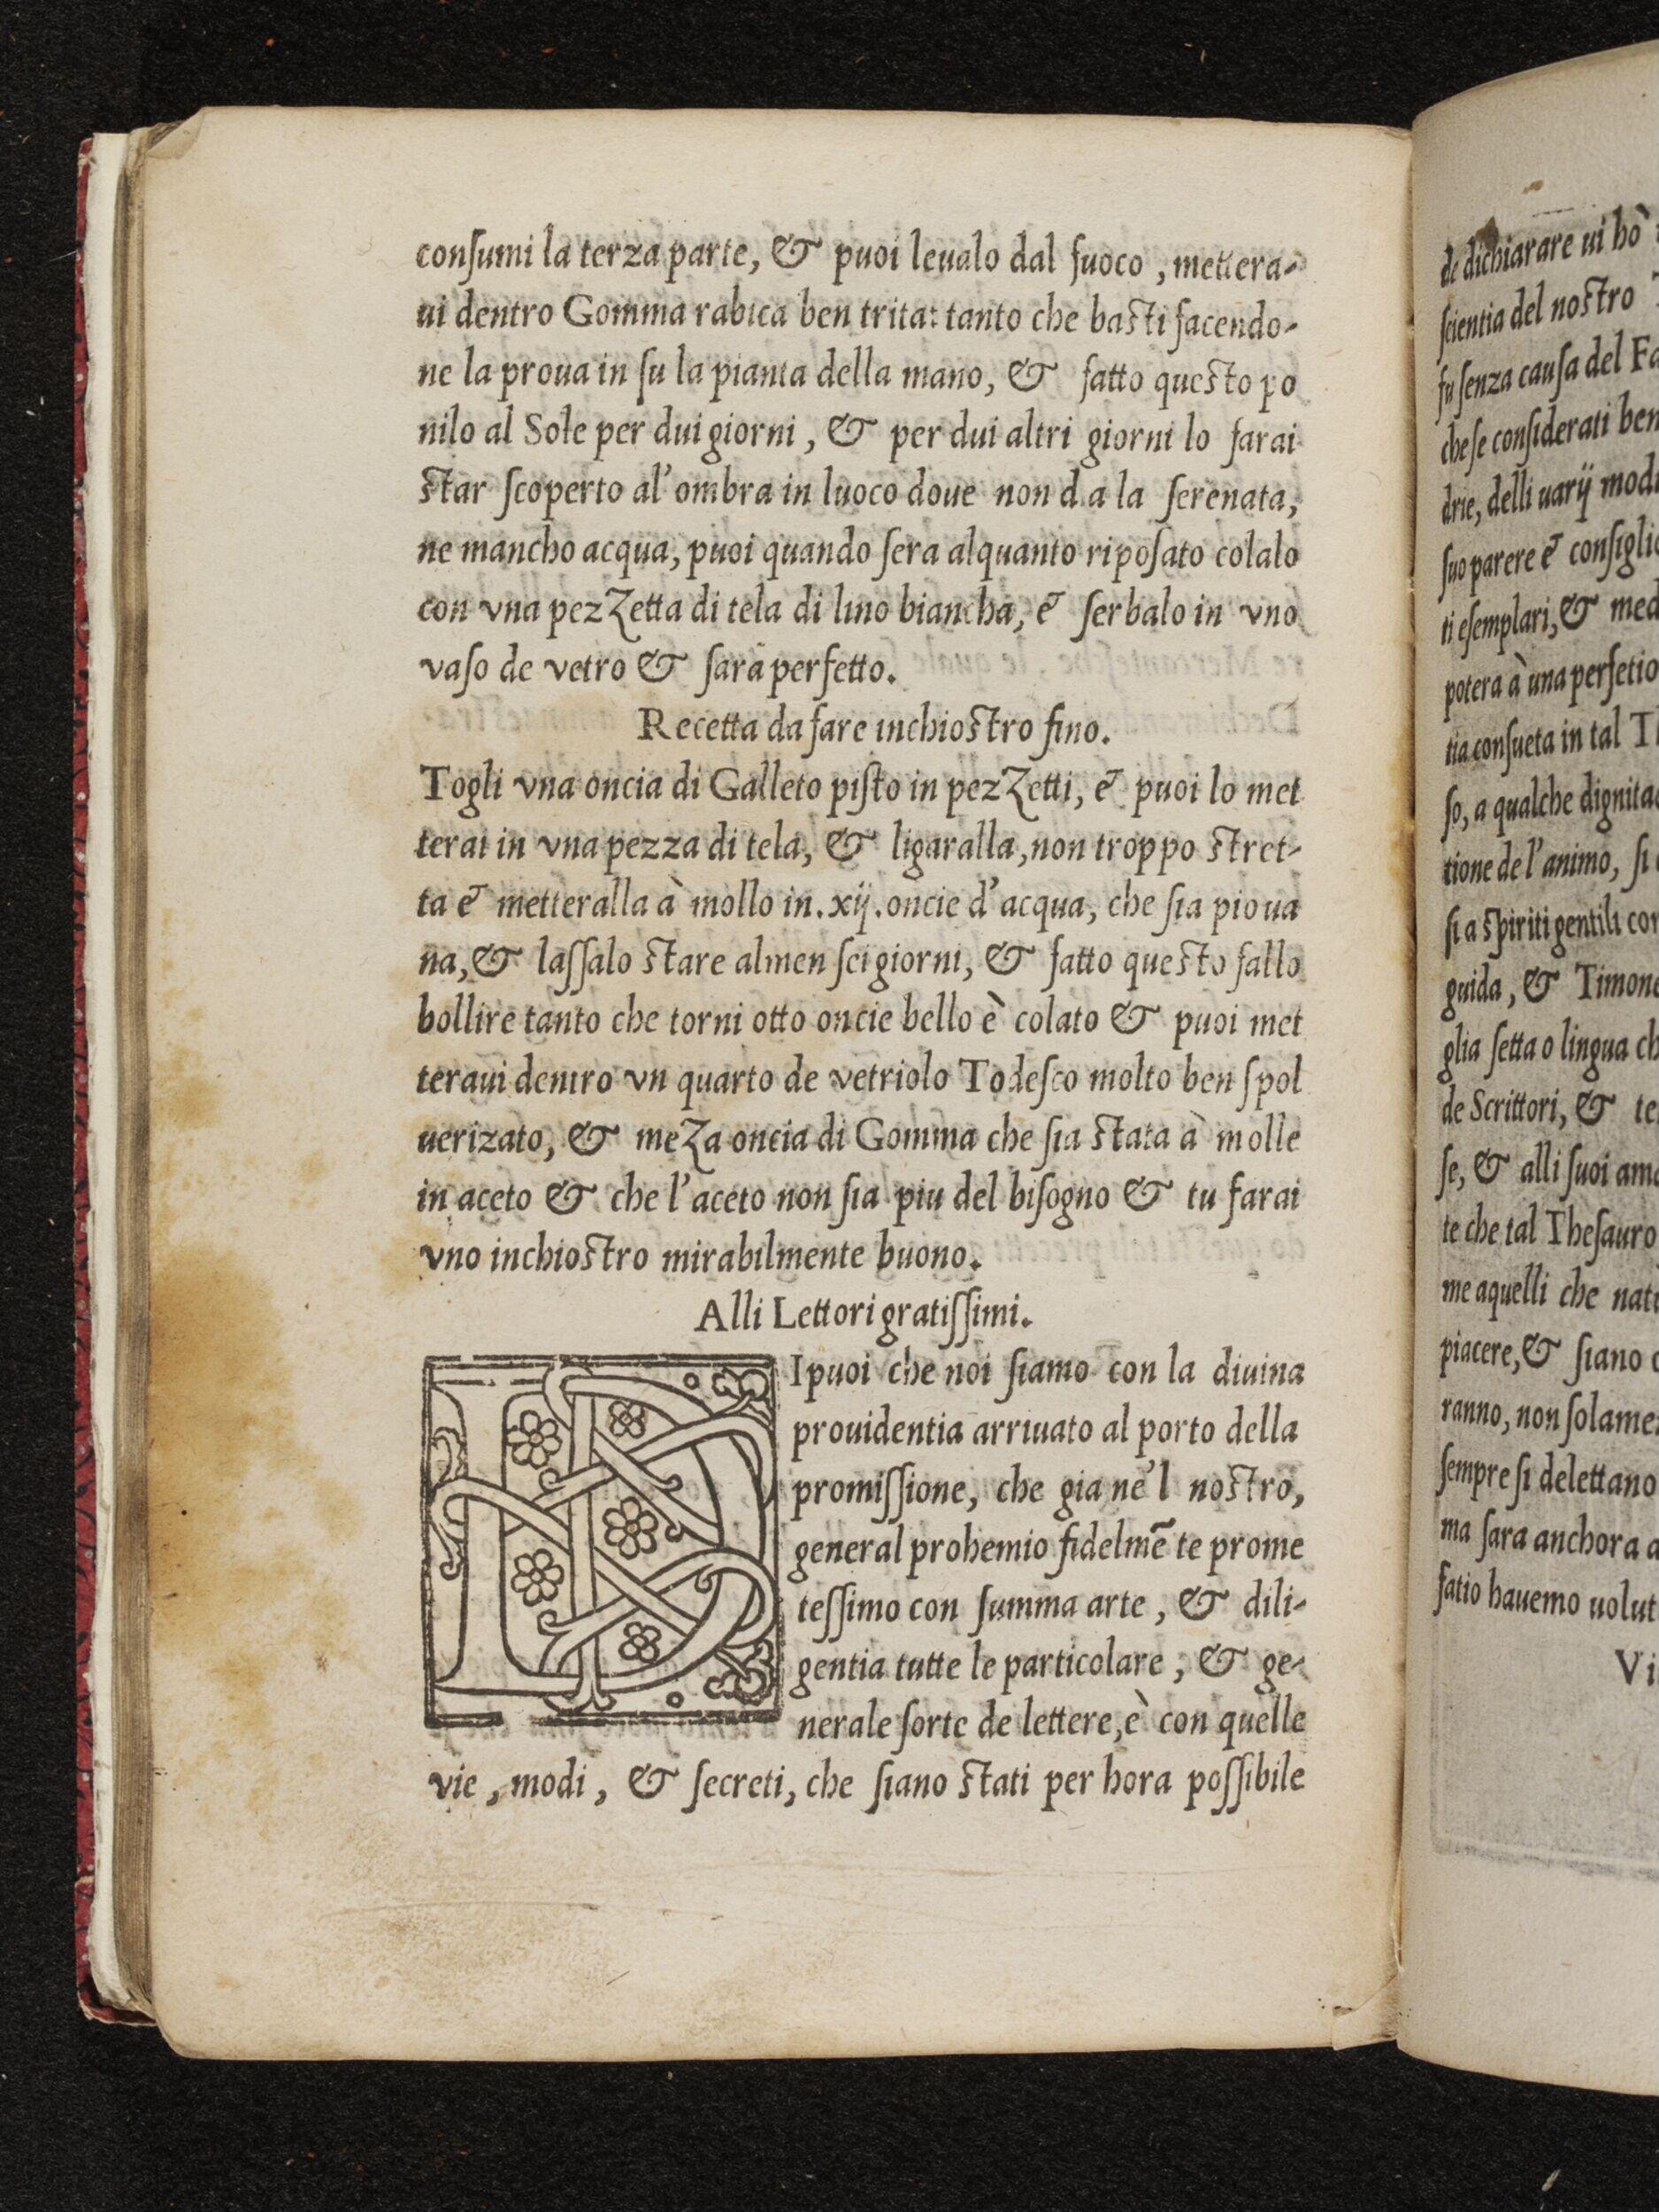 conſumi la terza parte, & puoi leualo dal fuoco, mettera-
ui dentro Gomma rabica ben trita: tanto che baſti facendo-
ne la proua in ſu la pianta della mano, & fatto queſto po
nilo al Sole per dui giorni, & per dui altri giorni lo farai
ſtar ſcoperto al'ombra in luoco doue non d.a la ſerenata,
ne mancho acqua, puoi quando ſera alquanto ripoſato colalo
con vna pezzetta di tela di lino biancha, & ſerbalo in vno
vaſo de vetro & ſara perfetto.
Recetta da fare inchioſtro fino.
Togli vna oncia di Galleto piſto in pezzetti, & puoi lo met
terai in vna pezza di tela, & ligaralla, non troppo ſtret-
ta & metteralla à mollo in.xij.oncie d'acqua, che ſia pioua
na, & laſſalo ſtare almen ſei giorni, & fatto queſto fallo
bollire tanto che torni otto oncie bello è colato & puoi met
teraui dentro vn quarto de vetriolo Todeſco molto ben ſpol
uerizato, & meza oncia di Gomma che ſia ſtata à molle
in aceto & che l'aceto non ſia piu del biſogno & tu farai
vno inchioſtro mirabilmente buono.
Alli Lettori gratiſſimi.
DIpuoi che noi ſiamo con la diuina
prouidentia arriuato al porto della
promiſſione, che gia ne'l noſtro,
general prohemio fidelmẽ te prome
teſſimo con ſumma arte, & dili-
gentia tutte le particolare, & ge-
nerale ſorte de lettere, è con quelle
vie, modi, & ſecreti, che ſiano ſtati per hora poſſibile
de dichiarare ui hò
ſcientia del noſtro
fu ſenza cauſa del
che ſe conſiderati
drie, delli uarij
ſuo parere &
ti eſemplari, &
potera à una
tia conſueta in tal
ſo, a qualche
tione de l'animo, ſi
ſi a ſpiriti gentili
guida, &
glia ſetta o lingua
de Scrittori, &
ſe, & alli ſuoi
te che tal Theſauro
me aquelli che
piacere, & ſiano
ranno, non
ſempre ſi delettano
ma ſara anchora
fatio hauemo